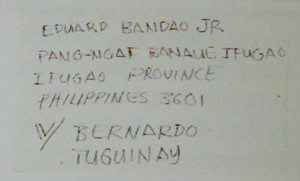 EDUARD BANDAO JR
PANG-NGAT BANAUE IFUGAO
IFUGAO PROVINCE
PHILIPPINES 3601
V/ BERNARDO
TUGUINAY